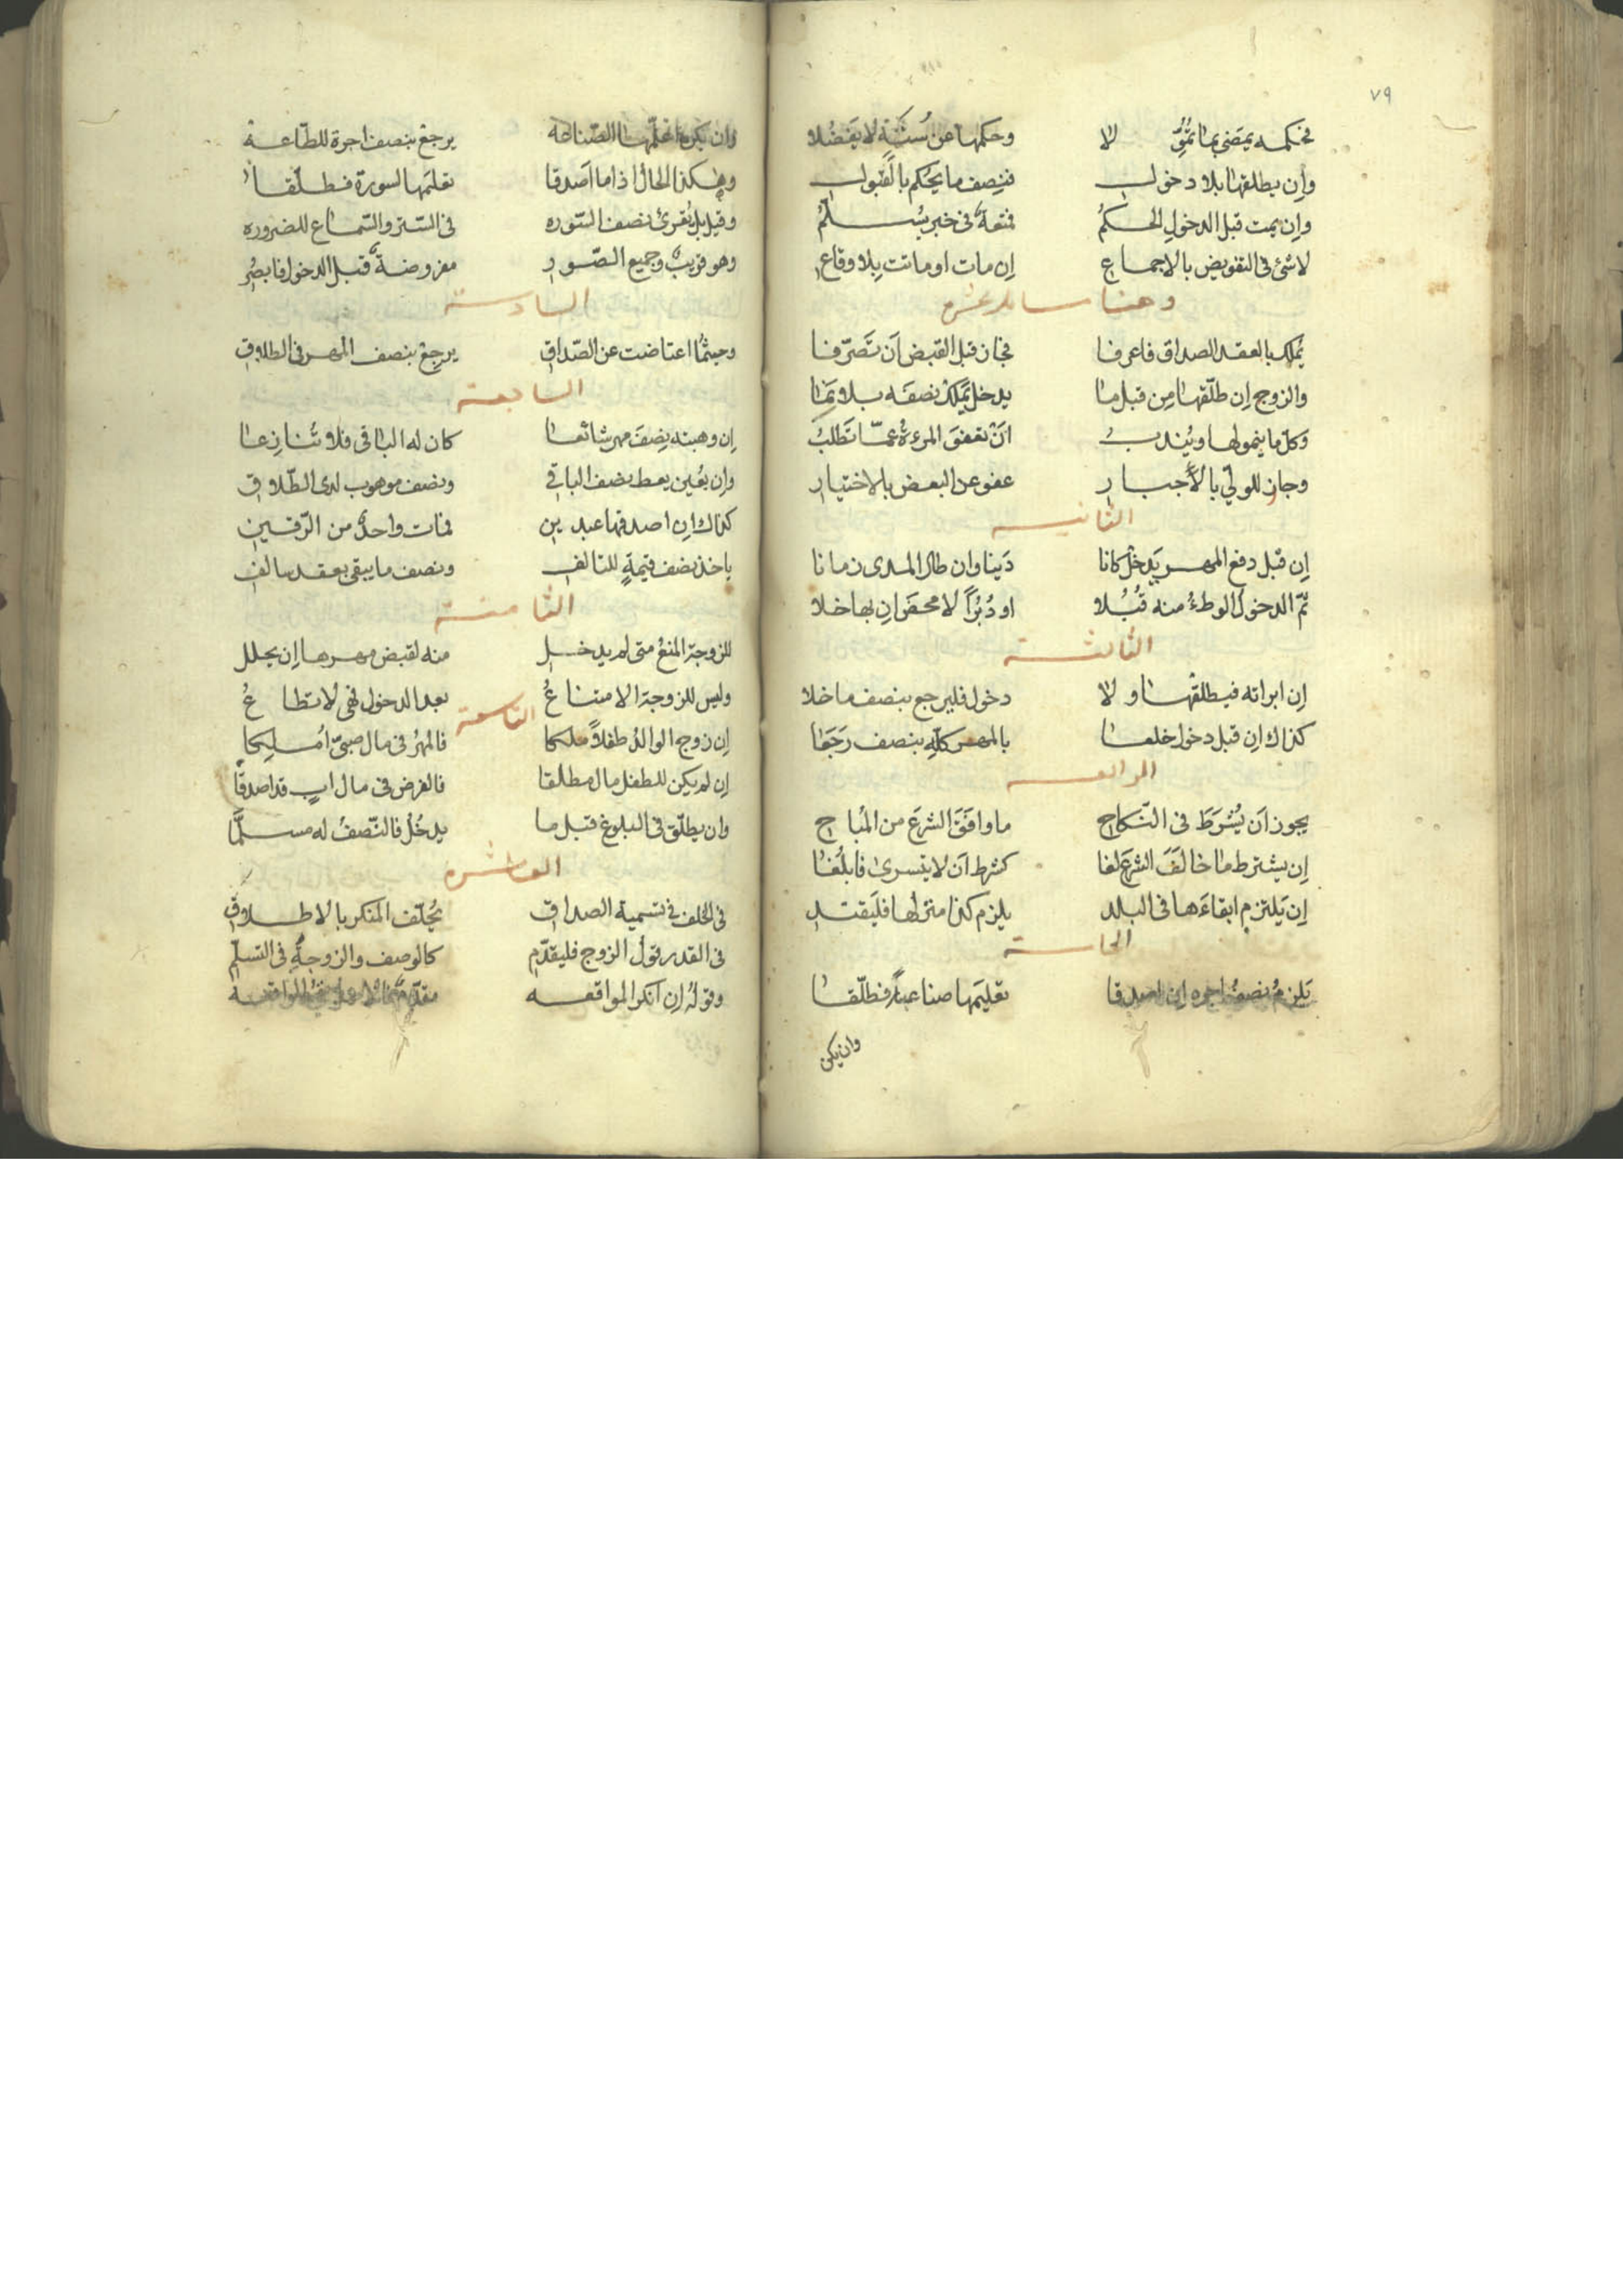 ٧٩
فحكمه يمضى بما تموّلا وحكمها عن سُنّةٍ لا يفضُلا
وإن يطلقها بلا دخول فنصف ما يحكم بالقبول
وإن يمت قبل الدخول الحكمُ فمتعةٌ فى خبر يُسلمُ
لا شئ فى التفويض بالاجماع إن مات او ماتت بلا وقاع
وهنا مسائل عشره
يُملك بالعقد الصداق فاعرفا فجاز قبل القبض أن تَصَرّفا
والزوج إن طلّقها مِن قبل ما يدخل يَملك نصفَه بلا نمَا
وكلّ ما ينمو لها ويُندبُ أنْ تعفوَ المرءة عمّا تَطلبُ
وجاز للولىّ بالاجبار عفو عن البعض بالاختيار
الثانيه
إن قبل دفع المهر يَدخلْ كانا دَينا وان طال المدى زمانا
ثمّ الدخول الوطءُ منه قُبُلا او دُبُراً لا محضَ ان بها خلا
الثالثة
إن ابراته فيطلقها ولا دخول فليرجع بنصف ما خلا
كذاك إن قبل دخول خلعا بالمهر كلّهِ بنصف رَجَعَا
الرابعه
يجوز أن يُشرَطَ فى النّكاح ما وافَقَ الشرعَ من المُباح
إن يشترط ما خالَفَ الشرعَ لغا كشرط أن لا يتسرى فابلُغا
إن يَلتزم ابقاءَها فى البلد يلزم كذا منزلها فليَقتدِ
الخامسة
يَلزمُ نصفُ اجره إن اصدقا تعليَمها صناعة فطلّقا
وان يكن
وان يكن علّمها الصّناعه يرجعْ بنصف اجرة للطّاعة
وهكذا الحال اذا ما اَصدقا تعليَمها لسورة فطلّقا
وقيل بل يُقرئ نصف السّوره فى السّتر والسّماع للضروره
وهو قريبٌ وجميع الصّور مفروضةٌ قبل الدخول فابصُر
السادسة
وحيثُما اعتاضت عن الصّداق يرجعْ بنصف المهر فى الطلاق
السابعة
إن وهبته نِصفَ مهر شائعا كان له الباقى فلا تُنازِعا
وإن يُعين يعط نصف الباقى ونصف موهوب لدى الطّلاق
كذاك إن اصدقها عبدين فمات واحدٌ من الرّقين
ياخذ نصف قيمةٍ للتالف ونصف ما يبقى بعقد سالف
الثامنة
للزوجة المنعُ متى لم يدخل منه لقبض مهرها إن يحلل
وليس للزوجة الامتناعُ بعد الدخول فهى لا تطاعُ
التاسعة
إن زوج الوالدُ طفلاً ملكا فالمهرُ فى مال صبىّ اُملِكا
إن لم يكن للطفل مال مطلقا فالفرض فى مال ابٍ قد اصدقا
وان يطلّق فى البلوغ قبل ما يدخُلْ فالنّصفُ له مسلّمَا
العاشره
فى الخلف فى تسمية الصداق يُحلّف المنكر بالاطلاق
فى القدر قول الزوج فليقدّم كالوصف والزوجةُ فى التسلّم
وقولُهُ إن انكر المواقعه